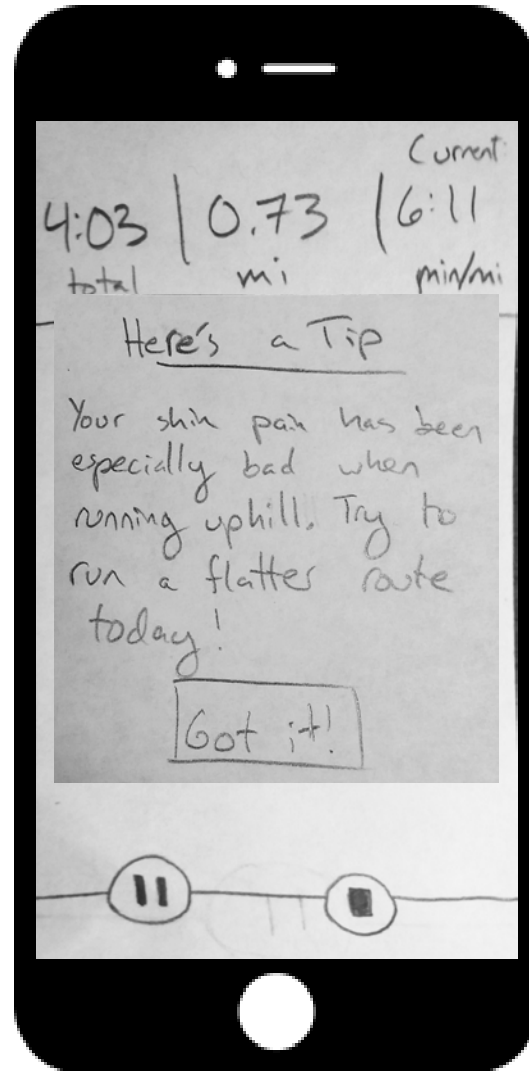 Current:
4:03 | 0.73 | 6:11
total mi min/mi
Here's a Tip
Your shin pain has been
especially bad when
running uphill. Try to
run a flatter route
today!
Got it!